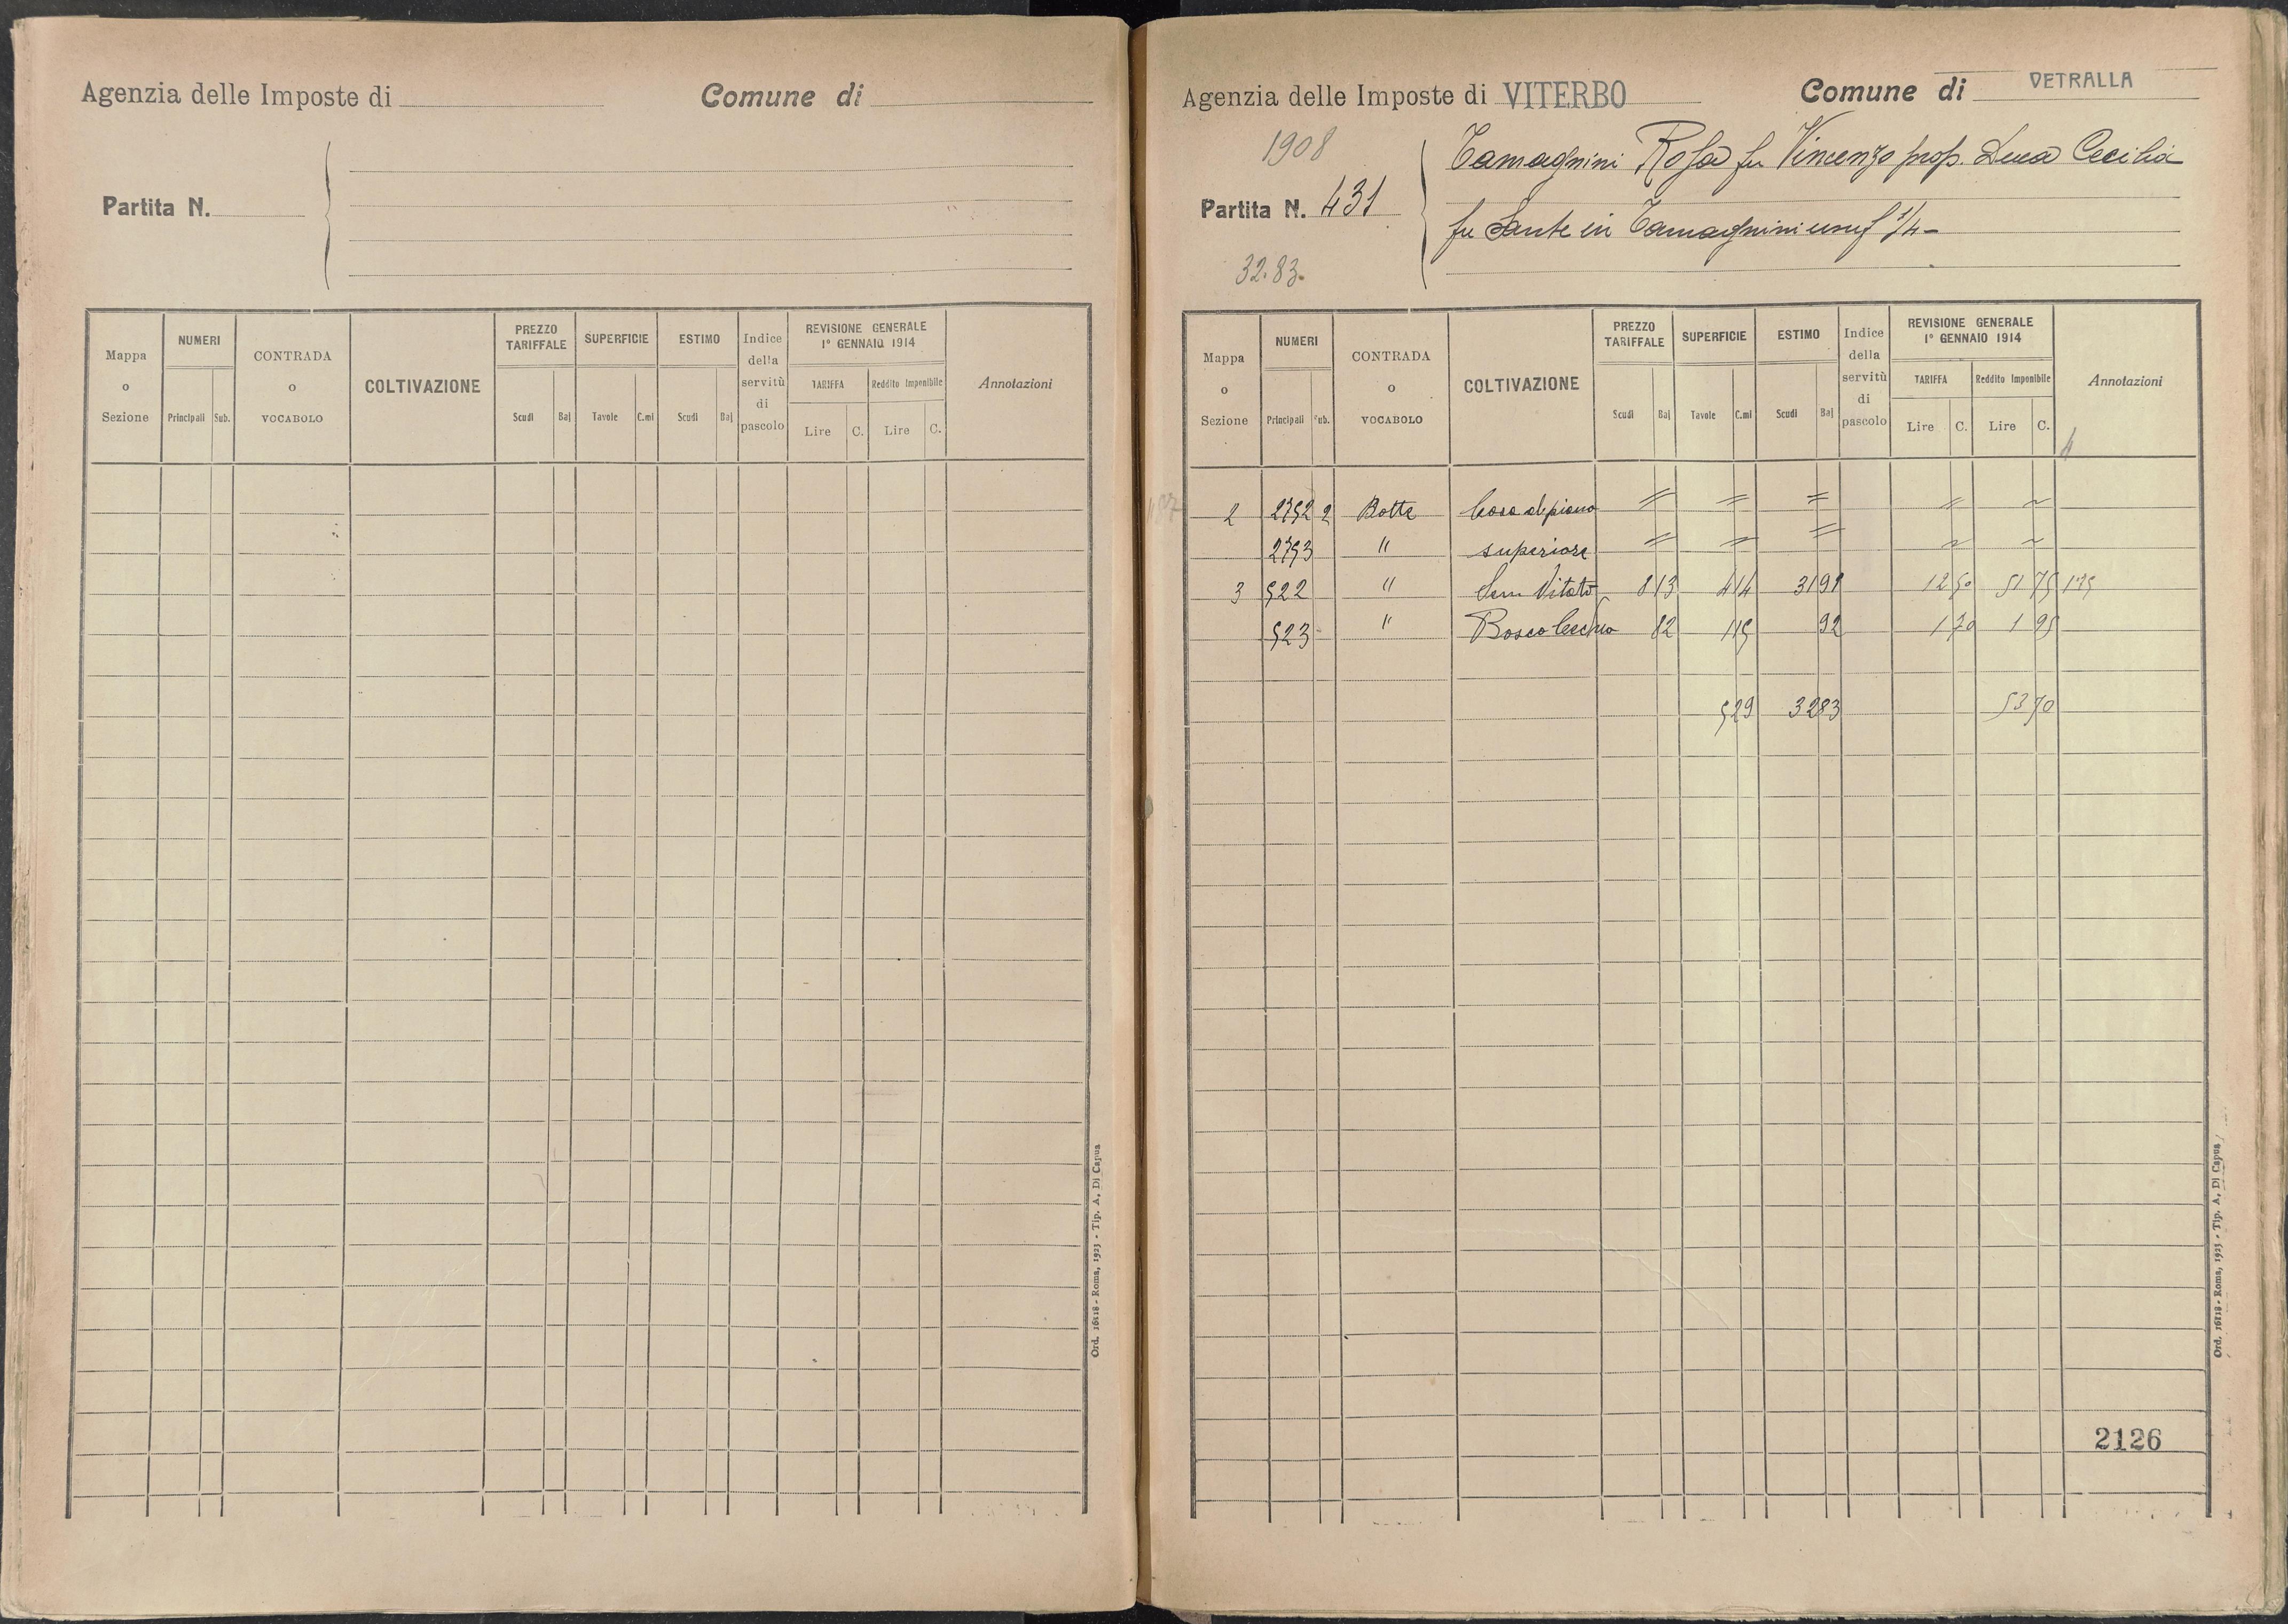 Agenzia delle Imposte di
Comune di
Partita N.
Mappa o Sezione
NUMERI
Principali Sub.
CONTRADA o VOCABOLO
COLTIVAZIONE
PREZZO TARIFFALE
Scudi Baj
SUPERFICIE
Tavole C.mi
ESTIMO
Scudi Baj
Indice della servitù di pascolo
REVISIONE GENERALE 1° GENNAIO 1914
TARIFFA Reddito Imponibile
Lire C. Lire C.
Annotazioni
Ord. 16118 - Roma, 1923 - Tip. A. Di Capua
Agenzia delle Imposte di VITERBO
Comune di VETRALLA
1908
Partita N. 431
32.83.
Tamagnini Rosa fu Vincenzo prop. Luca Cecilia
fu Sante in Tamagnini usuf 1/4 -
Mappa o Sezione
NUMERI
Principali Sub.
CONTRADA o VOCABOLO
COLTIVAZIONE
PREZZO TARIFFALE
Scudi Baj
SUPERFICIE
Tavole C.mi
ESTIMO
Scudi Baj
Indice della servitù di pascolo
REVISIONE GENERALE 1° GENNAIO 1914
TARIFFA Reddito Imponibile
Lire C. Lire C.
Annotazioni
2 2752 2 Botte Casa al piano = = = = ~
2753 " superiore = = = = ~
3 522 " Sem. Vitato 8 13 4 14 31 91 12 50 51 75 175
523 " Bosco Ceduo 82 1 15 92 1 70 1 95
5 29 32 83 53 70
2126
Ord. 16118 - Roma, 1923 - Tip. A. Di Capua